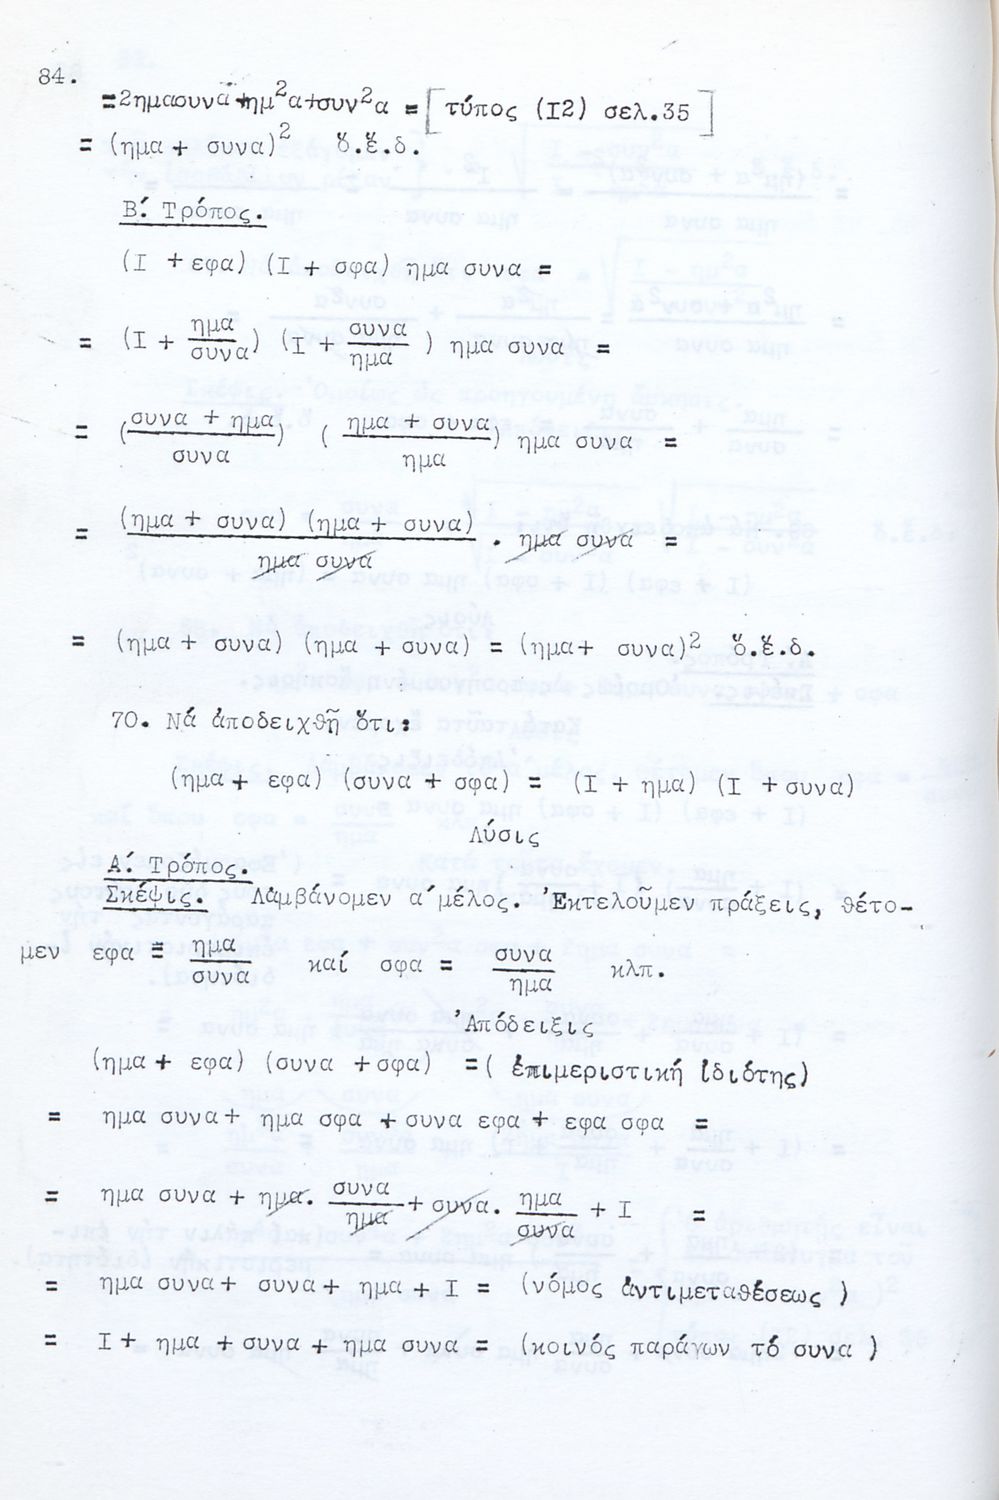 84.
=2ημασυνα+ημ²α+συν²α = [τύπος (I2) σελ.35]
= (ημα + συνα)² ὅ.ἔ.δ.
Β΄ Τρόπος.
(I + εφα) (I + σφα) ημα συνα =
= (I + ημα/συνα) (I + συνα/ημα) ημα συνα =
= (συνα + ημα/συνα) (ημα + συνα/ημα) ημα συνα =
= (ημα + συνα) (ημα + συνα)/ημα συνα . ημα συνα =
= (ημα + συνα) (ημα + συνα) = (ημα+ συνα)² ὅ.ἔ.δ.
70. Νά ἀποδειχθῇ ὅτι:
(ημα + εφα) (συνα + σφα) = (I + ημα) (I +συνα)
Λύσις
Α΄ Τρόπος.
Σκέψις. Λαμβάνομεν α΄μέλος. Ἐκτελοῦμεν πράξεις, θέτο-
μεν εφα = ημα/συνα καί σφα = συνα/ημα κλπ.
Ἀπόδειξις
(ημα + εφα) (συνα +σφα) =( ἐπιμεριστική ἰδιότης)
= ημα συνα+ ημα σφα +συνα εφα + εφα σφα =
= ημα συνα + ημα. συνα/ημα + συνα. ημα/συνα + I =
= ημα συνα+ συνα+ ημα + I = (νόμος ἀντιμεταθέσεως )
= I+ ημα +συνα + ημα συνα = (κοινός παράγων τό συνα )